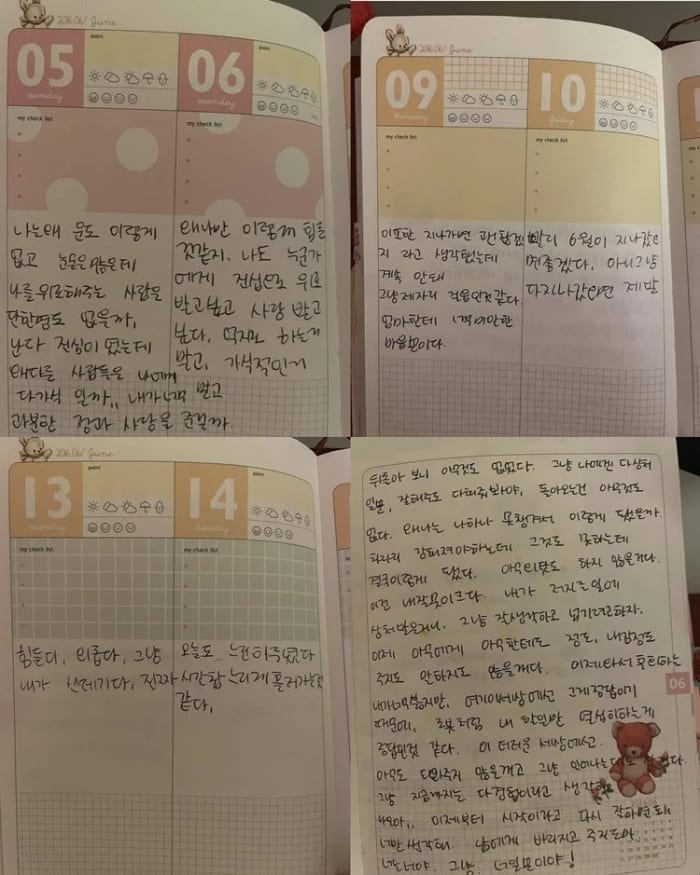 2016.06/ June
05
sunday
point
my check list
나는왜 운도 이렇게
없고 눈물은많은데
나를위로해주는 사람은
단한명도 없을까,
난다 진심이 였는데
왜다른 사람들은 나에게
다가식 일까,, 내가너무 많고
과분한 정과 사랑을 준걸까
06
monday
point
my check list
왜나만 이렇게 힘든
것같지. 나도 누군가
에게 진심으로 위로
받고싶고 사랑 받고
싶다. 억지로 하는거
말고, 가식적인거
2016.06/ June
09
thursday
my check list
이또한 지나가면 괜찮겠
지 라고 생각했는데
계속 안돼
그냥제자리 걸음인것같다.
엄마한테 너무미안한
마음뿐이다.
10
friday
my check list
빨리 6월이 지나갔으
면좋겠다. 아니그냥
다지나갔으면 제발
2016.06/ June
13
monday
point
my check list
힘들다, 외롭다, 그냥
내가 쓰레기다, 진짜
14
tuesday
point
my check list
오늘도 느린하루였다
시간참느리게 흘러가는것
같다,
뒤돌아 보니 아무것도 없었다. 그냥 나에겐 다상처
일뿐, 잘해주고 다해줘봐야, 돌아오는건 아무것도
없다. 왜나는 나하나 못챙겨서 이렇게 됐을까.
차라리 강해져야하는데 그것도 못하는데
결국이렇게 됐다. 아무의탓도 하지 않을거다.
이건 내잘못이크다. 내가 저지른일에
상처받은거니. 그냥 잘생각하고 넘기려고하자.
이제 아무에게 아무한테도 정도, 내감정도
주지도 안하지도 않을꺼다. 이제와서 후회하는
내가너무싫지만, 여기이세상에선 그게정답이기
때문이, 로봇처럼 내 할일만 열심히하는게
정답인것 같다. 이 더러운 세상에선
아무도 도와주지 않을꺼고 그냥
그냥 지금까지는 다경험이라고 생각
이제부터 시작이라고 다시 잘하면돼
너만생각해. 남에게 바라지고 주지도마.
너는너야. 그냥. 너일뿐이야!
06